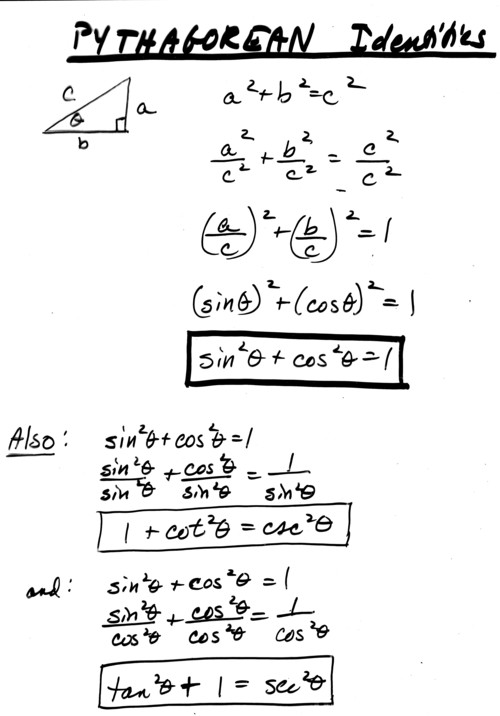 PYTHAGOREAN Identities
c
θ
a
b
a² + b² = c²
a²/c² + b²/c² = c²/c²
(a/c)² + (b/c)² = 1
(sinθ)² + (cosθ)² = 1
sin²θ + cos²θ = 1
Also: sin²θ + cos²θ = 1
sin²θ/sin²θ + cos²θ/sin²θ = 1/sin²θ
1 + cot²θ = csc²θ
and: sin²θ + cos²θ = 1
sin²θ/cos²θ + cos²θ/cos²θ = 1/cos²θ
tan²θ + 1 = sec²θ